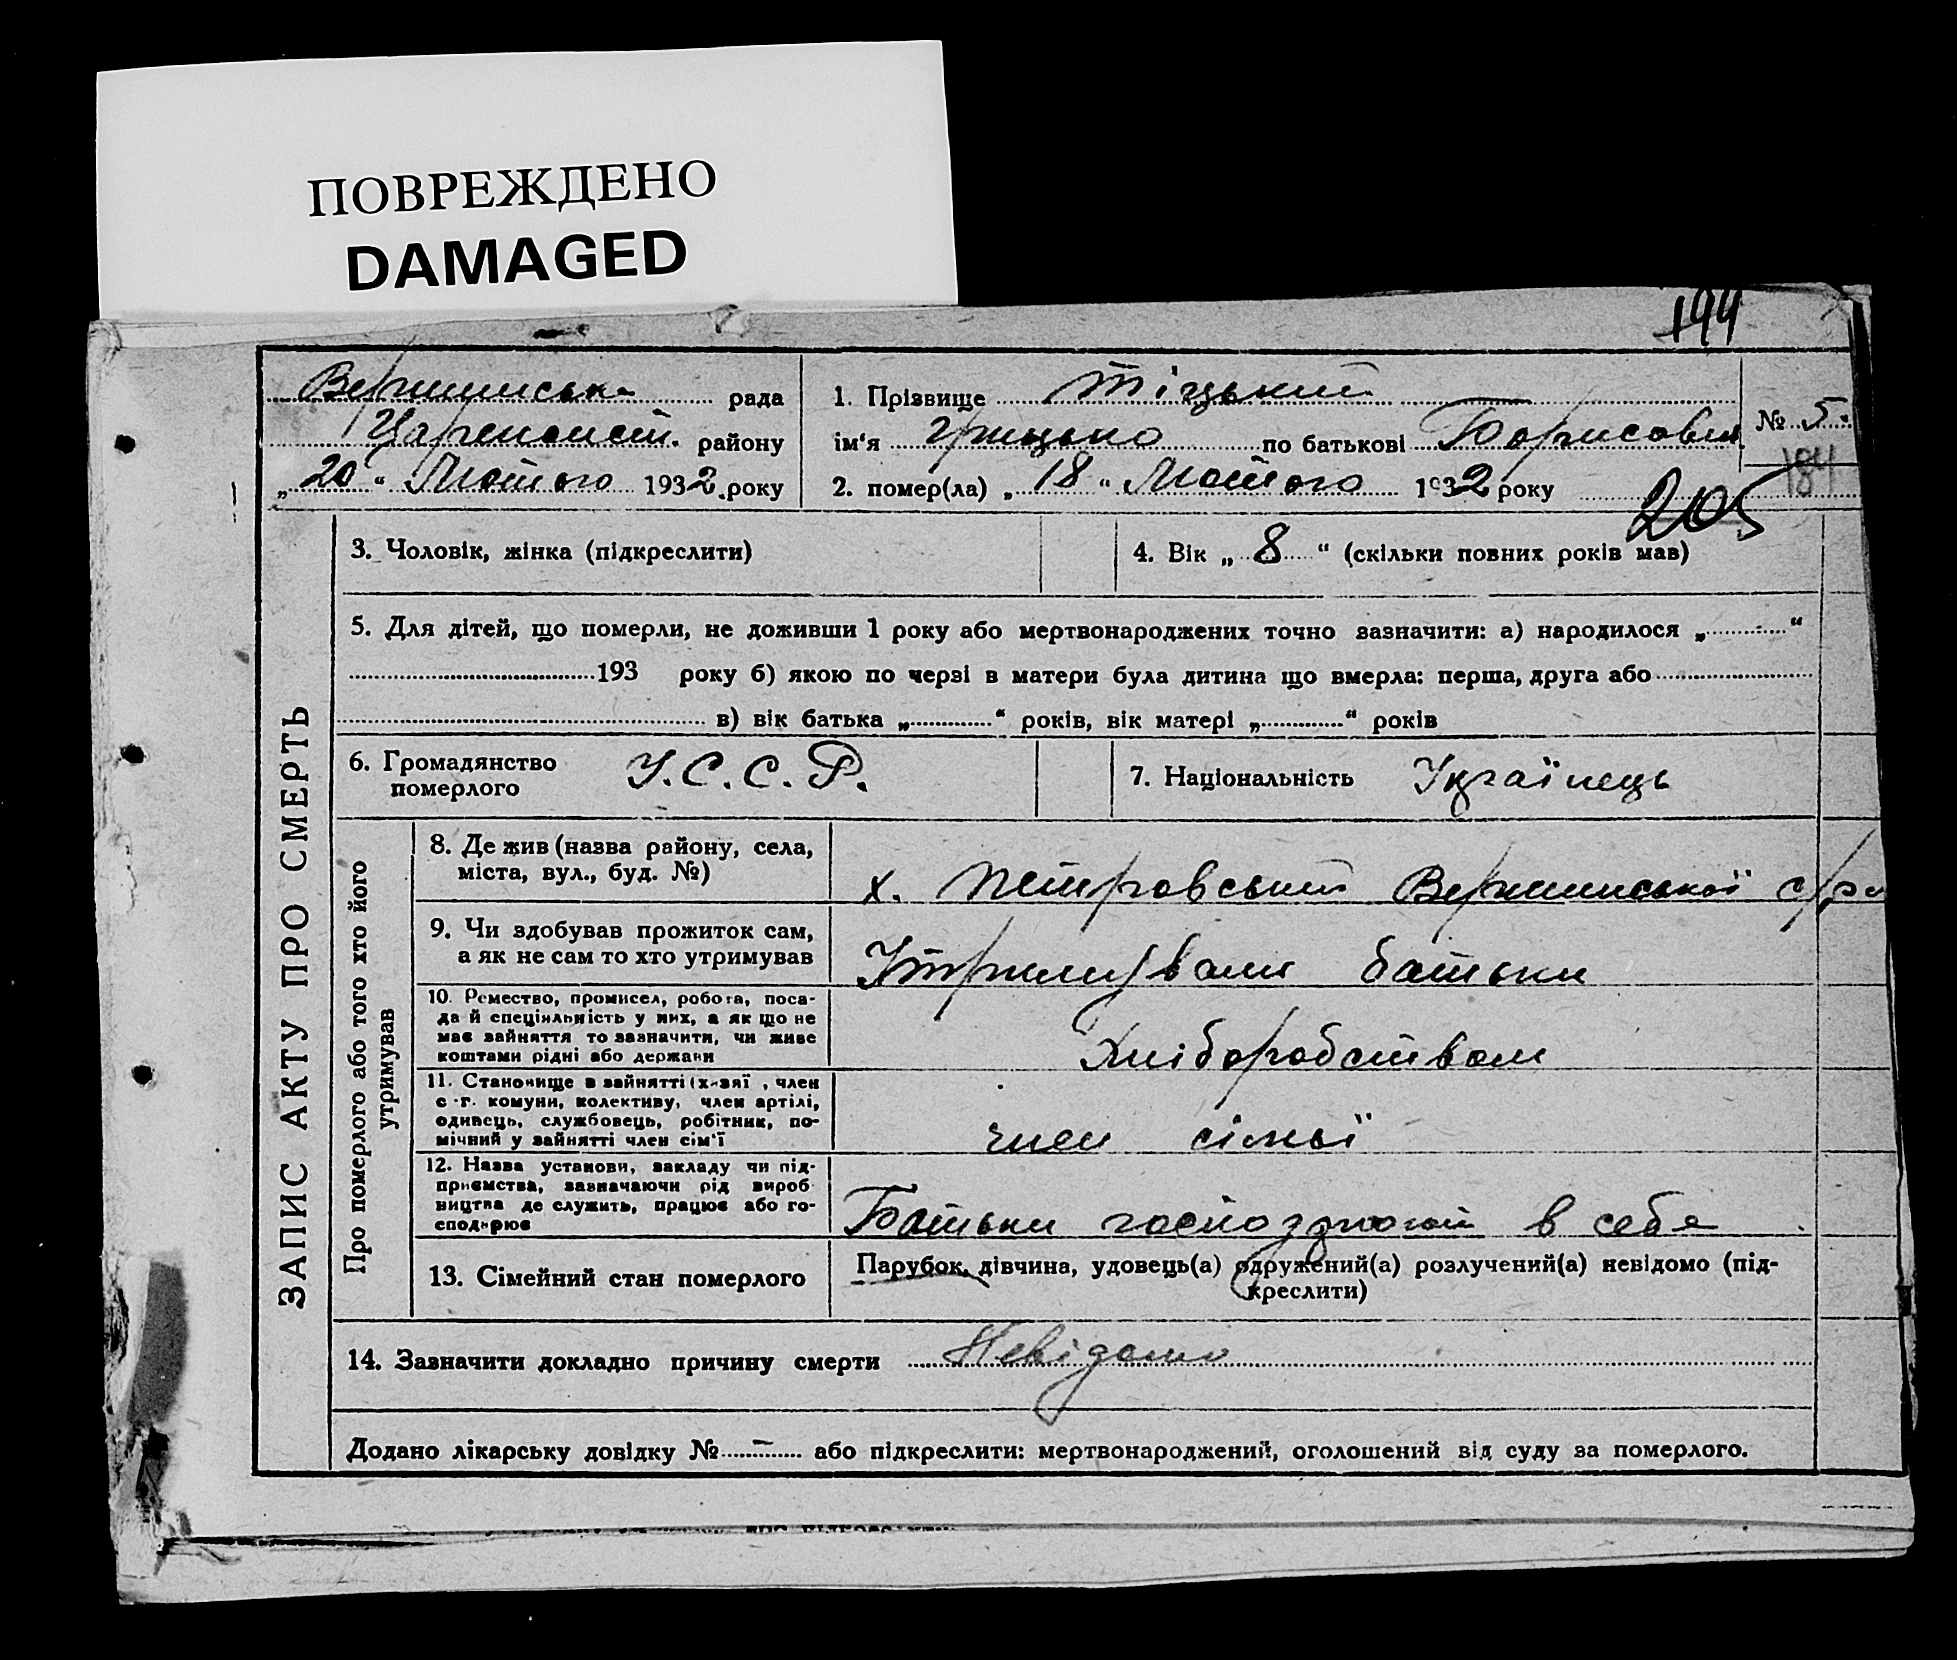 ПОВРЕЖДЕНО
DAMAGED
194
рада
району
„20“ Лютого 1932 року
1. Прізвище Тіцький
ім'я Грицько по батькові Борисович
№ 5.
184
2. помер(ла) „18“ Лютого 1932 року
205
ЗАПИС АКТУ ПРО СМЕРТЬ
3. Чоловік, жінка (підкреслити)
4. Вік „8“ (скільки повних років мав)
5. Для дітей, що померли, не доживши 1 року або мертвонароджених точно зазначити: а) народилося „ “
193 року б) якою по черзі в матери була дитина що вмерла: перша, друга або
в) вік батька „ “ років, вік матері „ “ років
6. Громадянство
померлого
У.С.С.Р.
7. Національність Українець
Про померлого або того хто його
утримував
8. Де жив (назва району, села,
міста, вул., буд. №)
х. Петровський Вершинської с/р
9. Чи здобував прожиток сам,
а як не сам то хто утримував
Утримували батьки
10. Ремество, промисел, робота, поса-
да й спеціяльність у них, а як що не
має зайняття то зазначити, чи живе
коштами рідні або держави
Хліборобством
11. Становище в зайнятті (х-зяї , член
с.-г. комуни, колективу, член артілі,
одинець, службовець, робітник, по-
мічний у зайнятті член сім'ї
член сімьї
12. Назва установи, закладу чи під-
приємства, зазначаючи рід вироб-
ництва де служить, працює або го-
сподарює
Батьки господарюють в себе
13. Сімейний стан померлого
Парубок, дівчина, удовець(а) одружений(а) розлучений(а) невідомо (під-
креслити)
14. Зазначити докладно причину смерти Невідомо
Додано лікарську довідку № – або підкреслити: мертвонароджений, оголошений від суду за померлого.